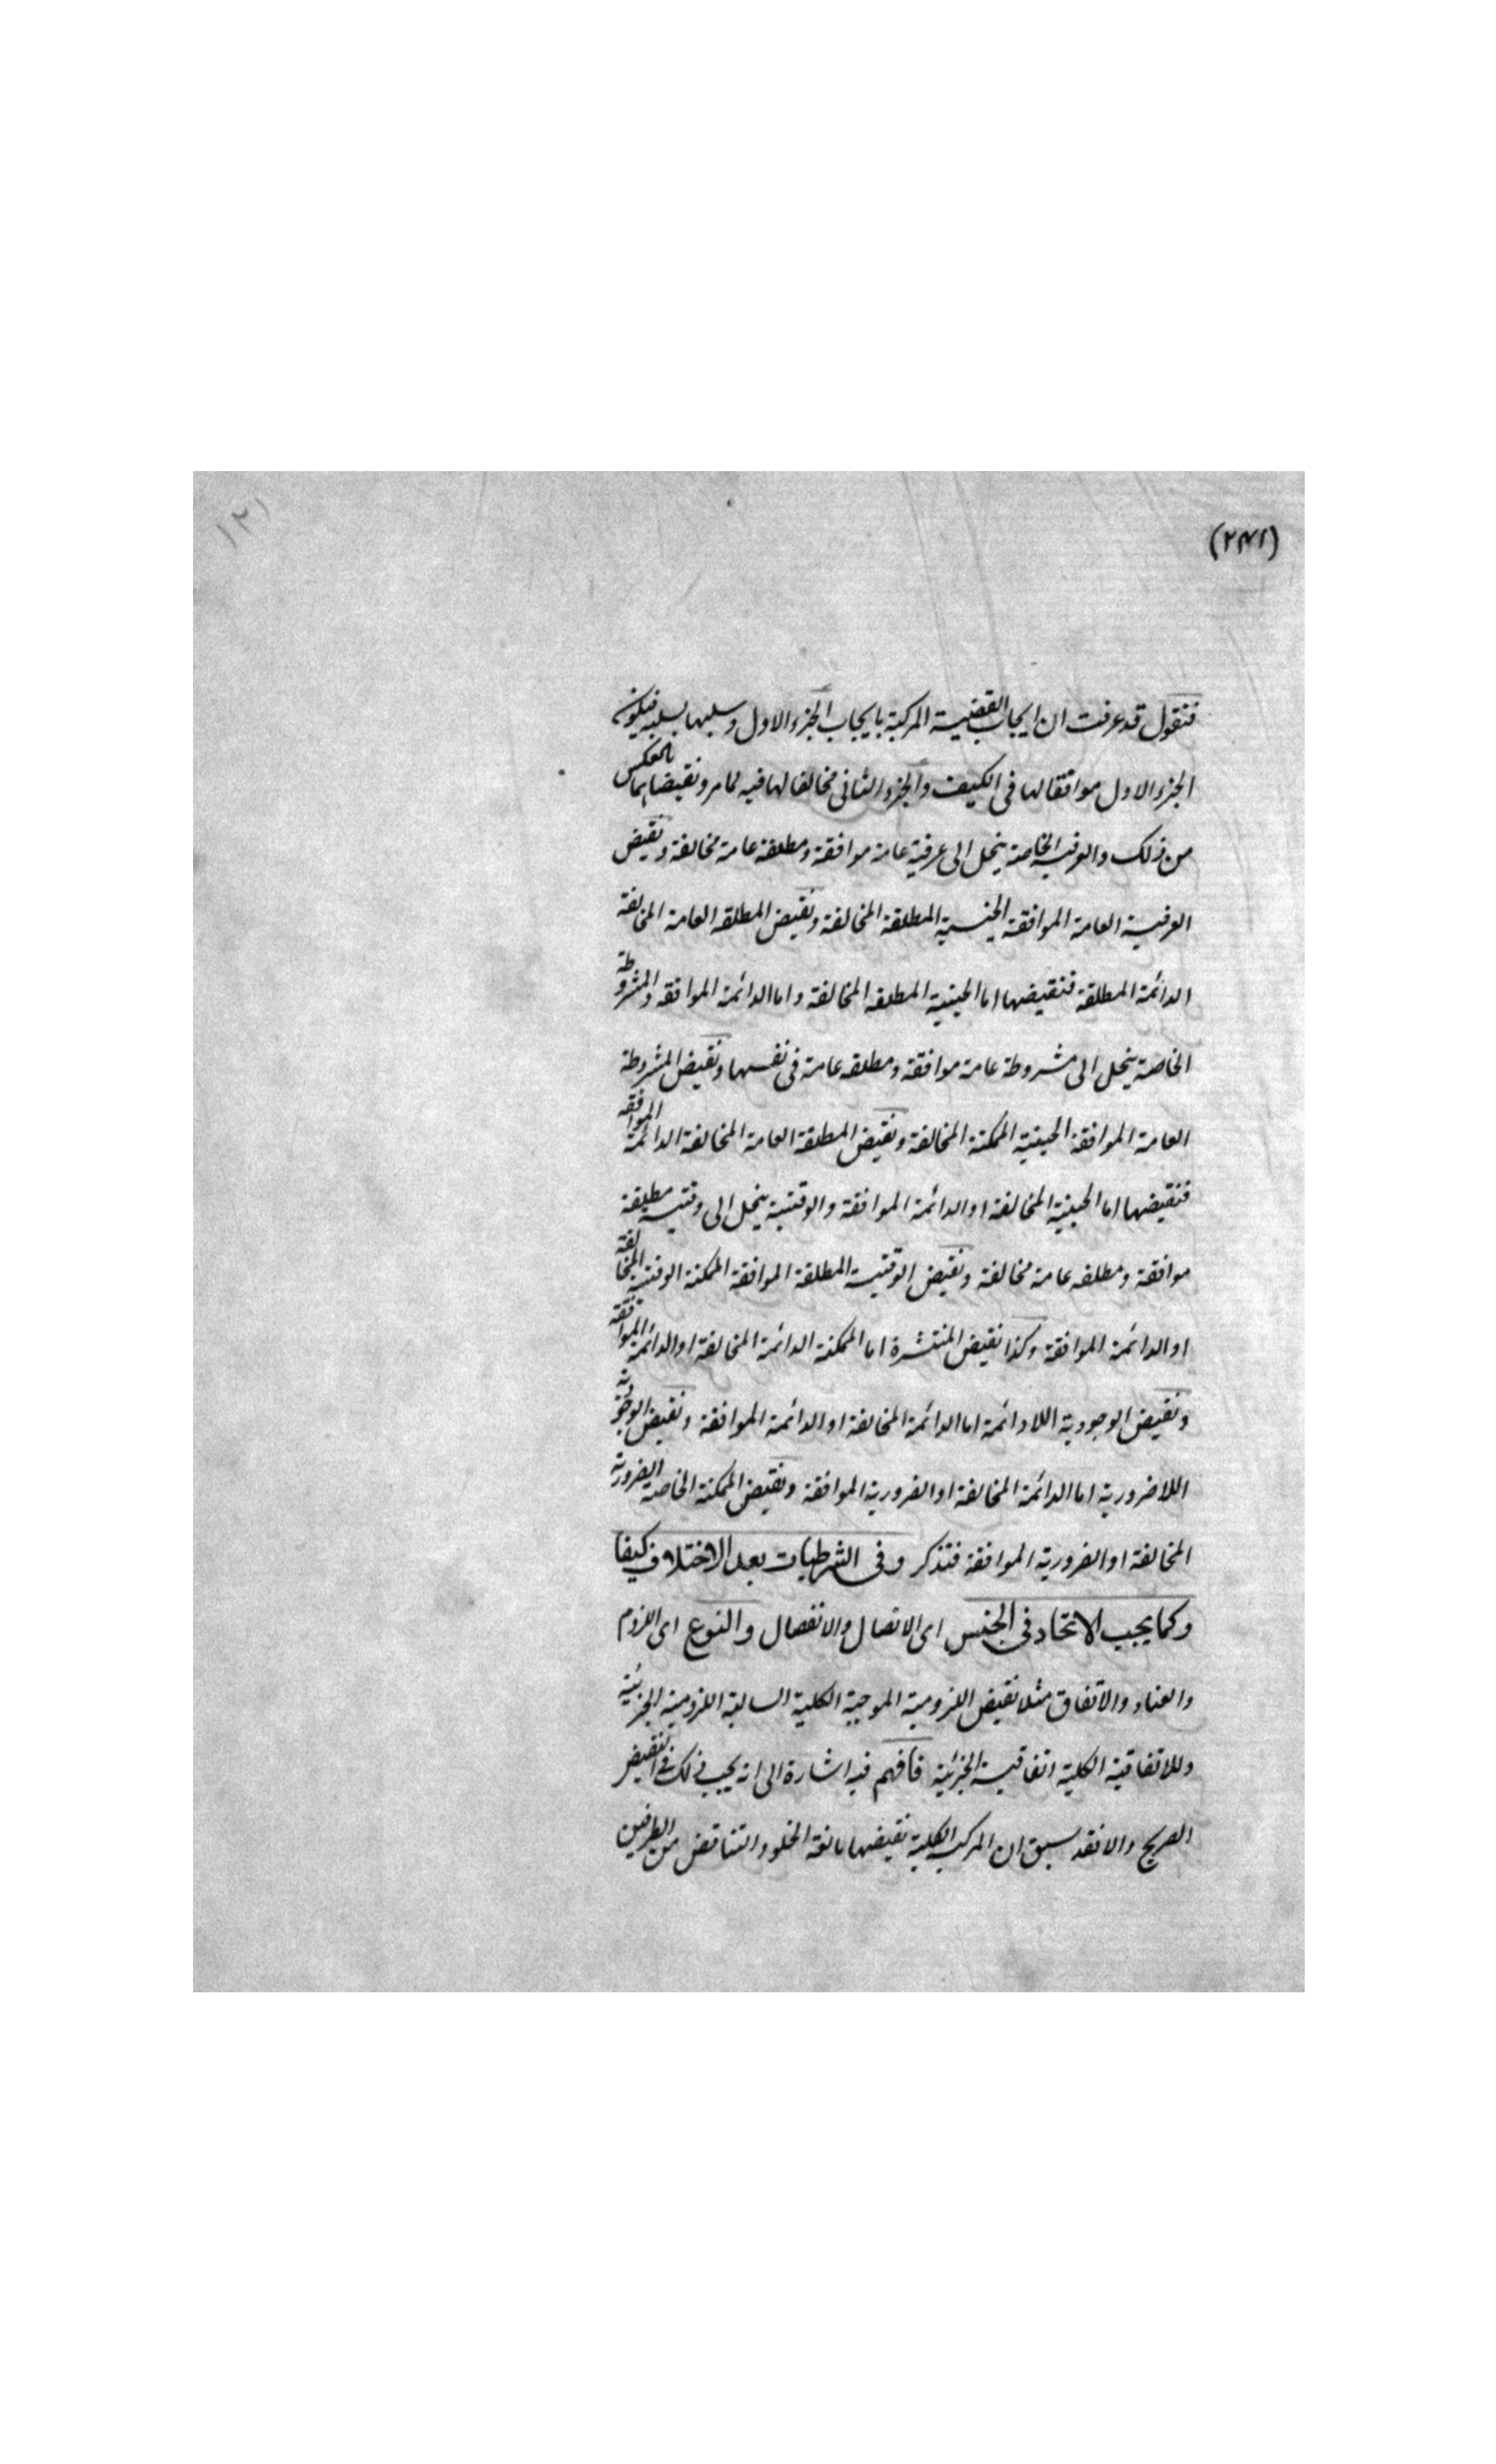 (٢٤١)
١٢١
فنقول قد عرفت ان ايجاب القضية المركبة بايجاب الجزء الاول وسلبها بسلبه فيكون
الجزء الاول موافقا لها فى الكيف والجزء الثانى مخالفا لها فيه لما مر ونقيضاهما بالعكس
من ذلك والعرفية الخاصة ينحل الى عرفية عامة موافقة ومطلقة عامة مخالفة ونقيض
العرفية العامة الموافقة الحينية المطلقة المخالفة ونقيض المطلقة العامة المخالفة
الدائمة المطلقة فنقيضها اما الحينية المطلقة المخالفة واما الدائمة الموافقة والمشروطة
الخاصة ينحل الى مشروطة عامة موافقة ومطلقة عامة فى نفسها ونقيض المشروطة
العامة الموافقة الحينية الممكنة المخالفة ونقيض المطلقة العامة المخالفة الدائمة الموافقة
فنقيضها اما الحينية المخالفة او الدائمة الموافقة والوقتية ينحل الى وقتية مطلقة
موافقة ومطلقة عامة مخالفة ونقيض الوقتية المطلقة الموافقة الممكنة الوقتية المخالفة
او الدائمة الموافقة وكذا نقيض المنتشرة اما الممكنة الدائمة المخالفة او الدائمة الموافقة
ونقيض الوجودية اللادائمة اما الدائمة المخالفة او الدائمة الموافقة ونقيض الوجودية
اللاضرورية اما الدائمة المخالفة او الضرورية الموافقة ونقيض الممكنة الخاصة الضرورية
المخالفة او الضرورية الموافقة فتذكر وفى الشرطيات بعد الاختلاف كيفا
وكما يجب الاتحاد فى الجنس اى الاتصال والانفصال والنوع اى اللزوم
والعناد والاتفاق مثلا نقيض اللزومية الموجبة الكلية السالبة اللزومية الجزئية
وللاتفاقية الكلية اتفاقية الجزئية فافهم فيه اشارة الى انه يجب ذلك فى النقيض
الصريح والا فقد سبق ان المركبة الكلية نقيضها مانعة الخلو والتناقض من الطرفين